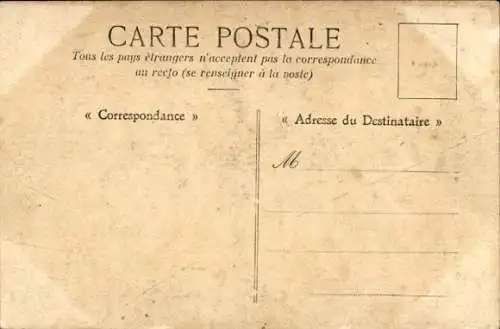 CARTE POSTALE
Tous les pays étrangers n'acceptent pas la correspondance
au recto (se renseigner à la poste)
« Correspondance »
« Adresse du Destinataire »
M